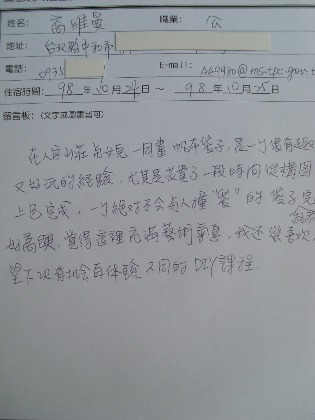 姓名：高維曼 職業：公
地址：台北縣中和市
電話：0935 E-mail：@ms.tpc.gov.t
住宿時間：98年10月24日～98年10月25日
留言板：(文字或圖畫皆可)
在人上山莊与女兒一同畫帆布袋子，是一個很有趣
又好玩的經驗，尤其是花費了一段時間從構圖
上色完成，一個絕對不會与人撞“袋”的袋子完
好高興，覺得這裡充滿藝術氣息，我还蠻喜歡，
望下次有机会再体驗不同的DIY課程。